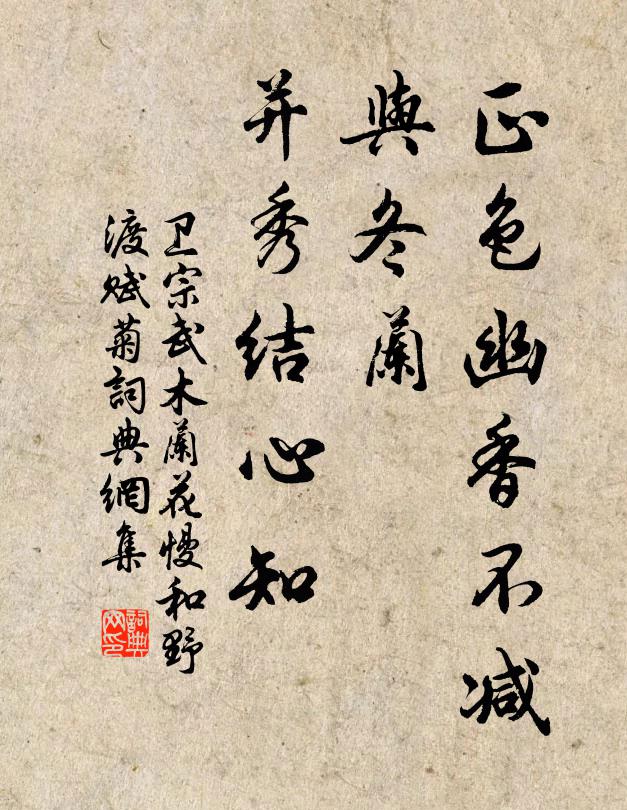 正色幽香不减
與冬蘭
并秀结心知
卫宗武木蘭花慢和野
渡赋菊詞典網集
詞典网印